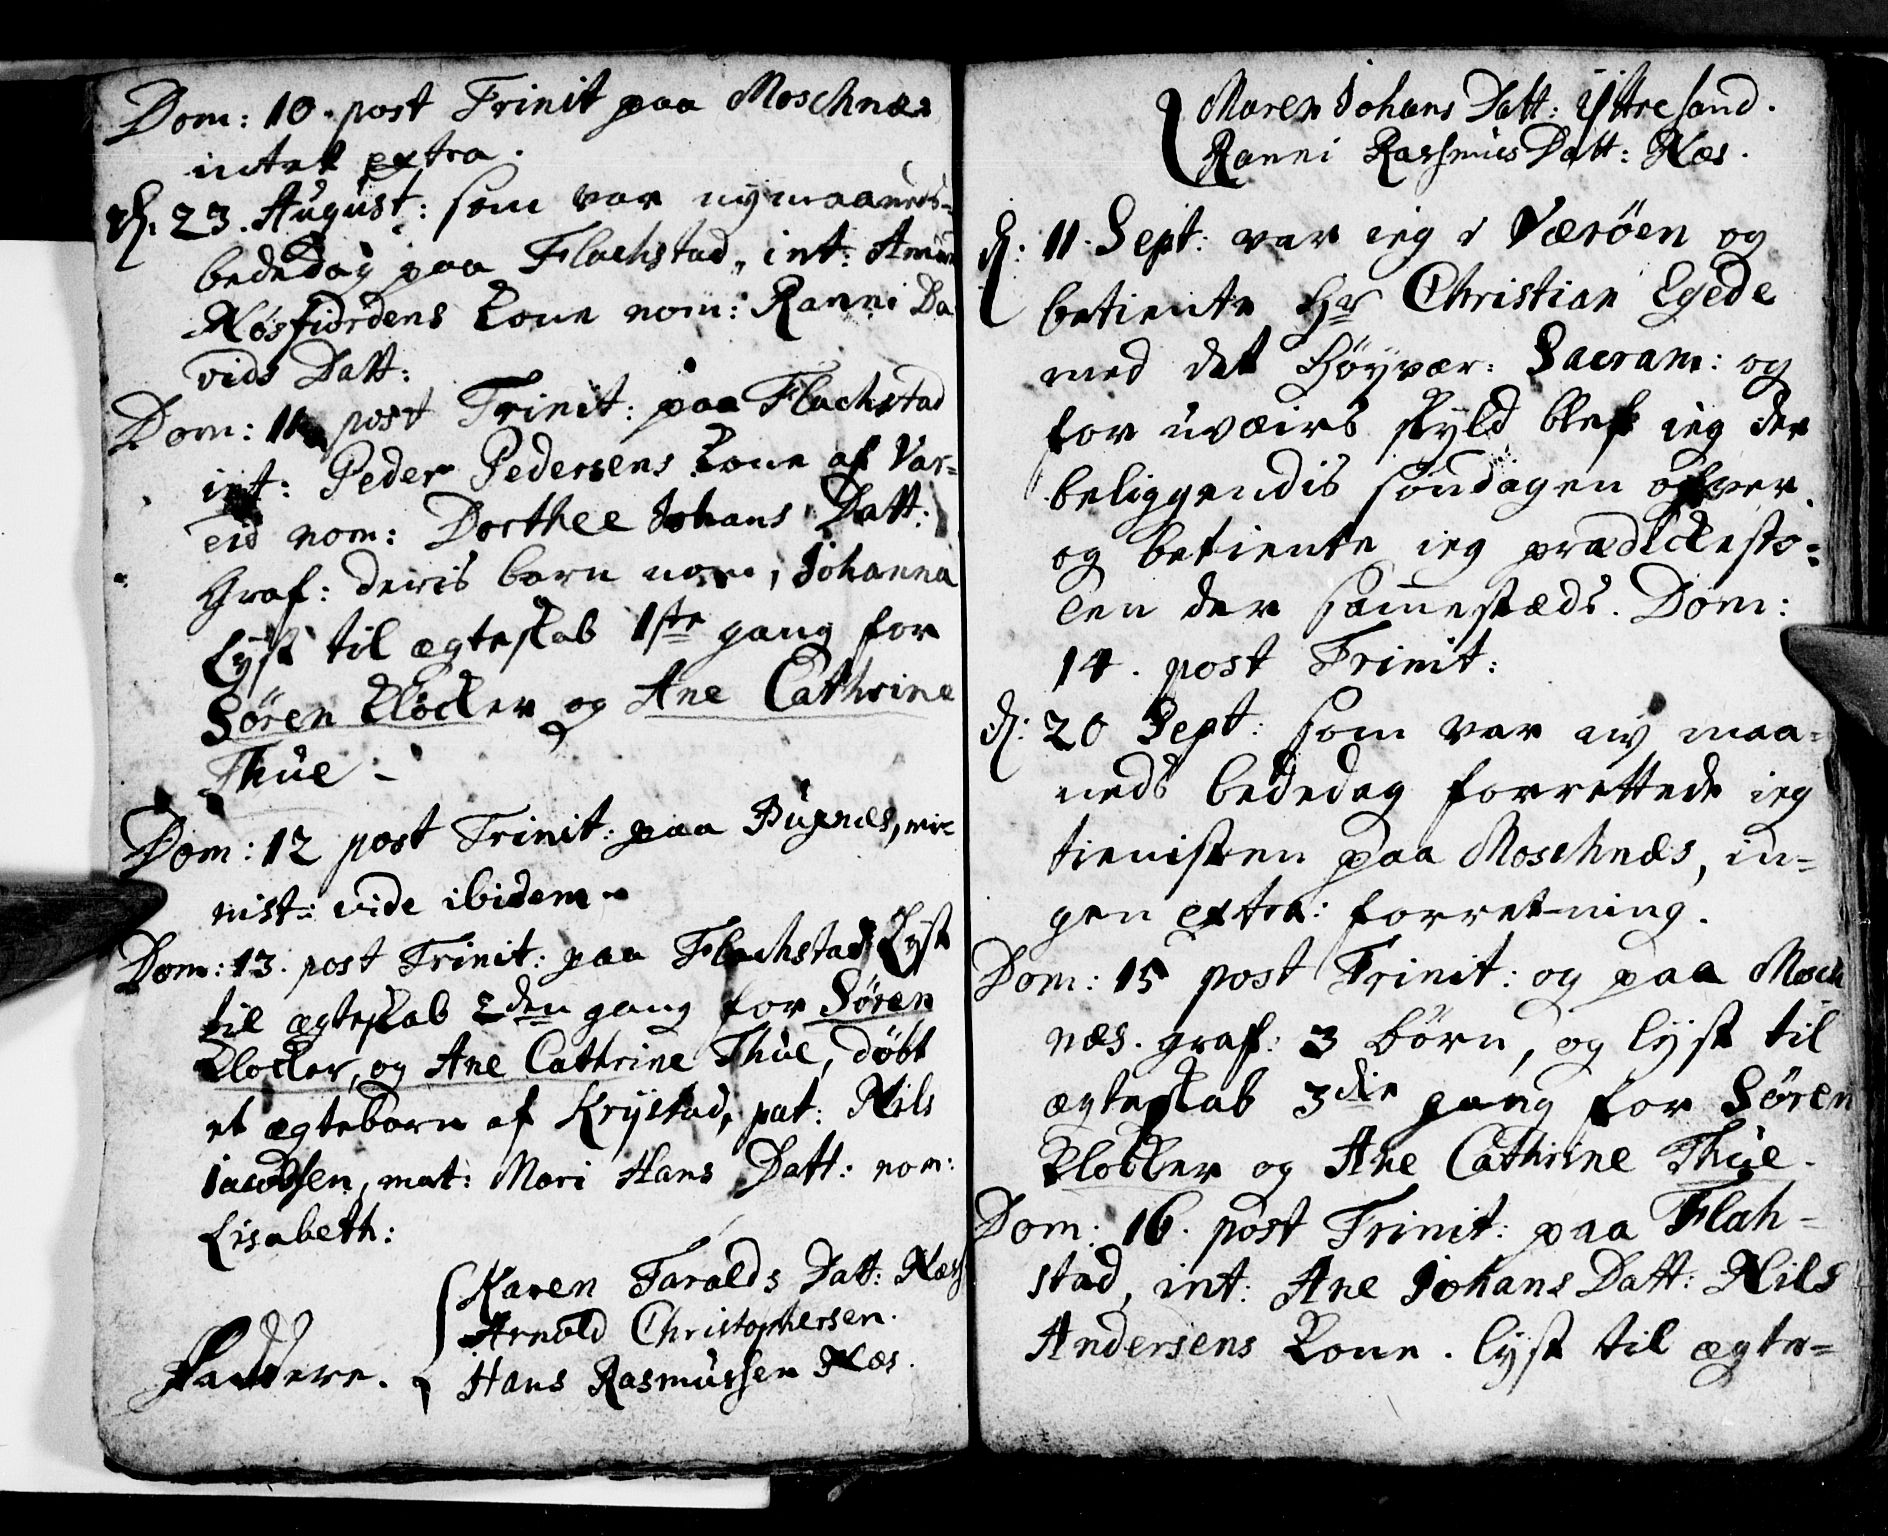 Dom: 10. post Trinit paa Moschnæs
intet extra.
d. 23. August: som var nymaaneds-
bededag paa Flachstad, int:
Nösfiordens Kone nom: Ranni Da
vids Datt:
Dom: 11 post Trinit: paa Flachstad
int: Peder Pedersens Kone af Var=
eid nom: Dorthee Johans Datt:
Graf: deris barn nom, Johanna
Lyst til ægteskab 1ste gang for
Sören Klocker og Ane Cathrine
Thüe -
Dom: 12 post Trinit: paa Buxnæs, mi
nist: vide ibidem -
Dom: 13. post Trinit: paa Flachstad Lyst
til ægteskab 2den gang for Sören
Klocker, og Ane Cathrine Thüe, döbt
et ægtebarn af Krystad, pat: Nils
Jacobsen, mat: Mari Hans Datt: nom:
Lisabeth:
Karen Taralds Datt: Næs
Arnold Christophersen.
Faddere. Hans Rasmussen Næs.
Maren Johans Datt: Yttresand.
Ranni Rasmus Datt: Næs.
d: 11. Sept: var ieg i Væröen og
betiente Hr Christian Egede
med det Höyvær: Sacram: og
for uvæirs skyld blef ieg der
beliggendis söndagen ofver
og betiente ieg prædickesto=
len der sammestæds. Dom:
14. post Trinit:
d: 20 Sept: som var ny maa=
neds bededag forrettede ieg
tienisten paa Moschnæs, in=
gen extra: forretning.
Dom: 15 post Trinit: og paa Mosch
næs. graf: 3 börn, og lyst til
ægteskab 3die gang for Sören
Klocker og Ane Cathrine Thüe.
Dom: 16. post Trinit: paa Flah=
stad, int: Ane Johans Datt: Nils
Andersens Kone. lyst til ægte=